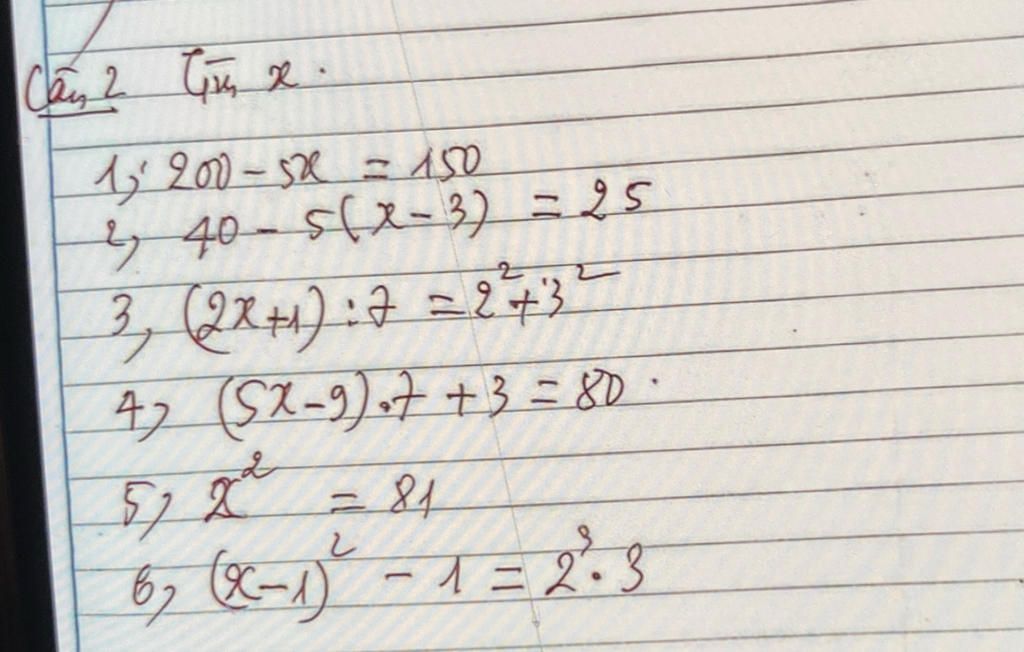 Câu 2 Tìm x.
1, 200 - 5x = 150
2, 40 - 5(x - 3) = 25
3, (2x+1) : 7 = 2² + 3²
4, (5x - 9).7 + 3 = 80.
5, x² = 81
6, (x - 1)² - 1 = 2³.3